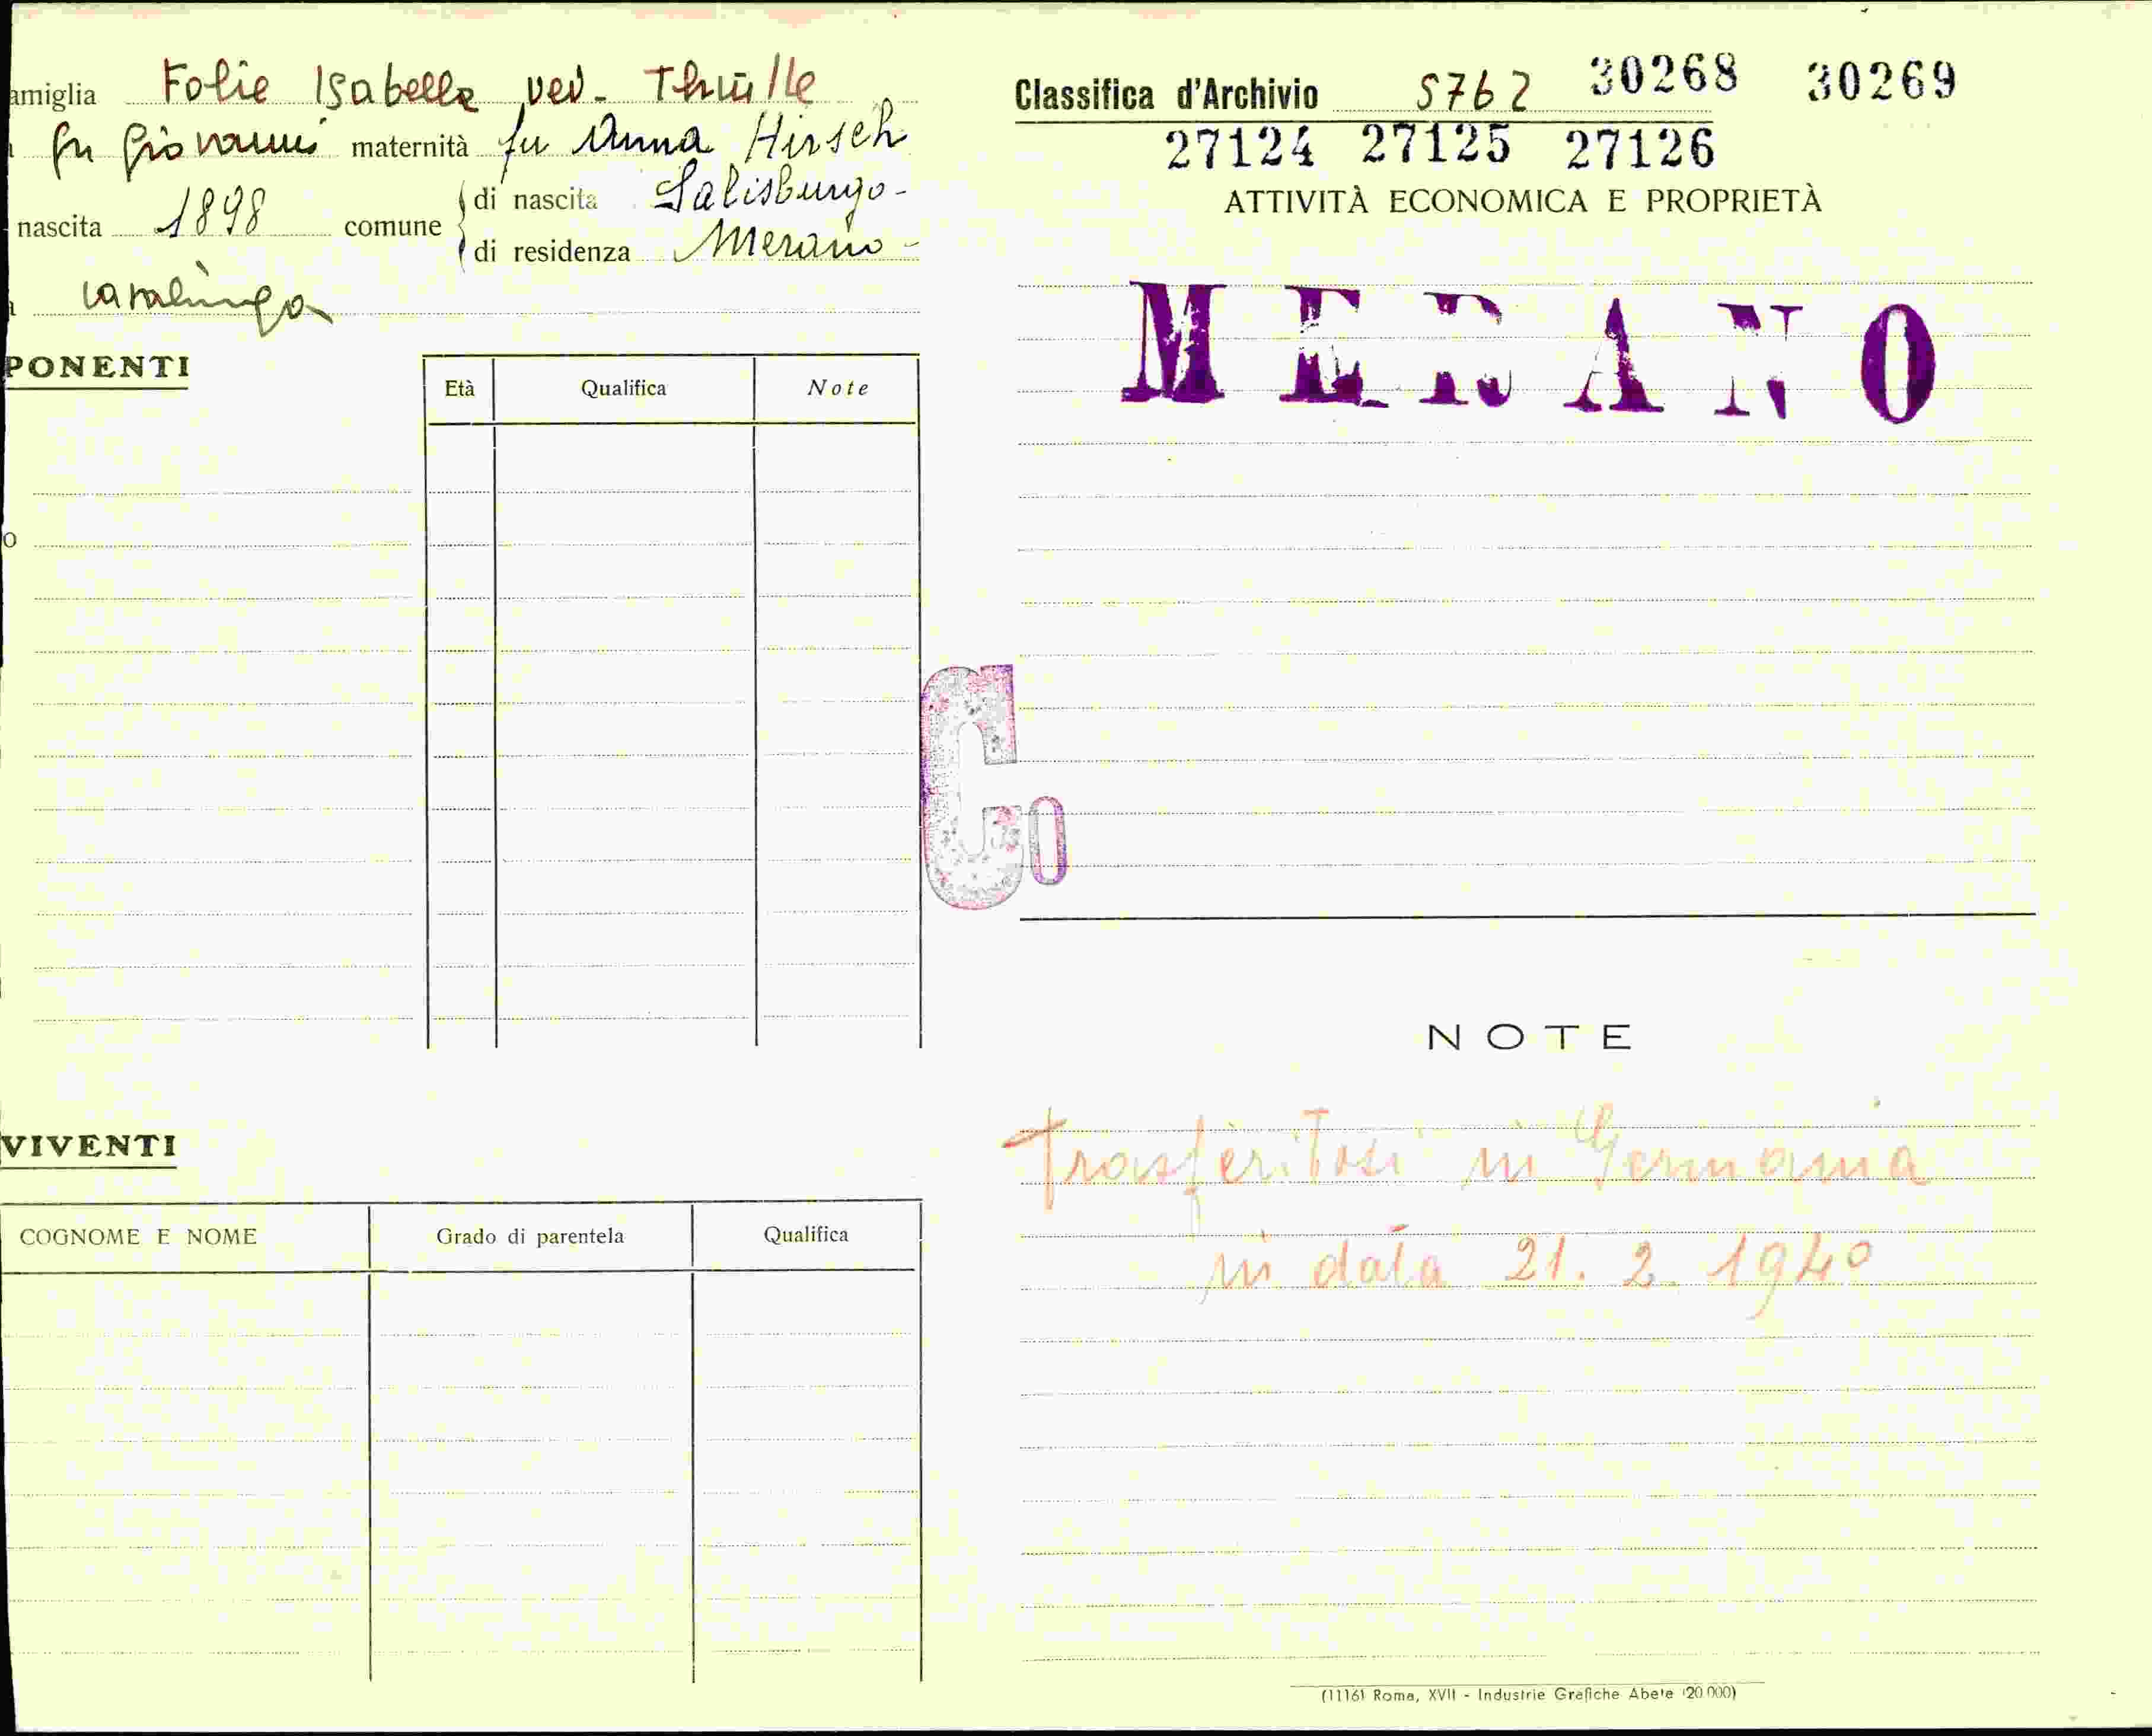 amiglia Folie Isabella ved. Thuille
fu Giovanni maternità fu Anna Hirsch
nascita 1898 comune di nascita Salisburgo -
di residenza Merano -
casalinga
PONENTI
Età Qualifica Note
o
VIVENTI
COGNOME E NOME Grado di parentela Qualifica
Classifica d'Archivio 5762 30268 30269
27124 27125 27126
ATTIVITÀ ECONOMICA E PROPRIETÀ
MERANO
Co
NOTE
Trasferitasi in Germania
in data 21. 2. 1940
(1116) Roma, XVII - Industrie Grafiche Abete (20.000)